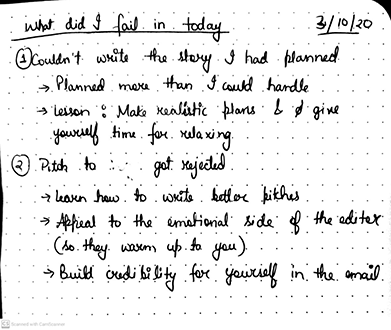 what did I fail in today 3/10/20
① Couldn't write the story I had planned
→ Planned more than I could handle
→ lesson : Make realistic plans & give
yourself time for relaxing.
② Pitch to : . got rejected
→ learn how to write better pitches.
→ Appeal to the emotional side of the editor
(so they warm up to you)
→ Build credibility for yourself in the email
Scanned with CamScanner